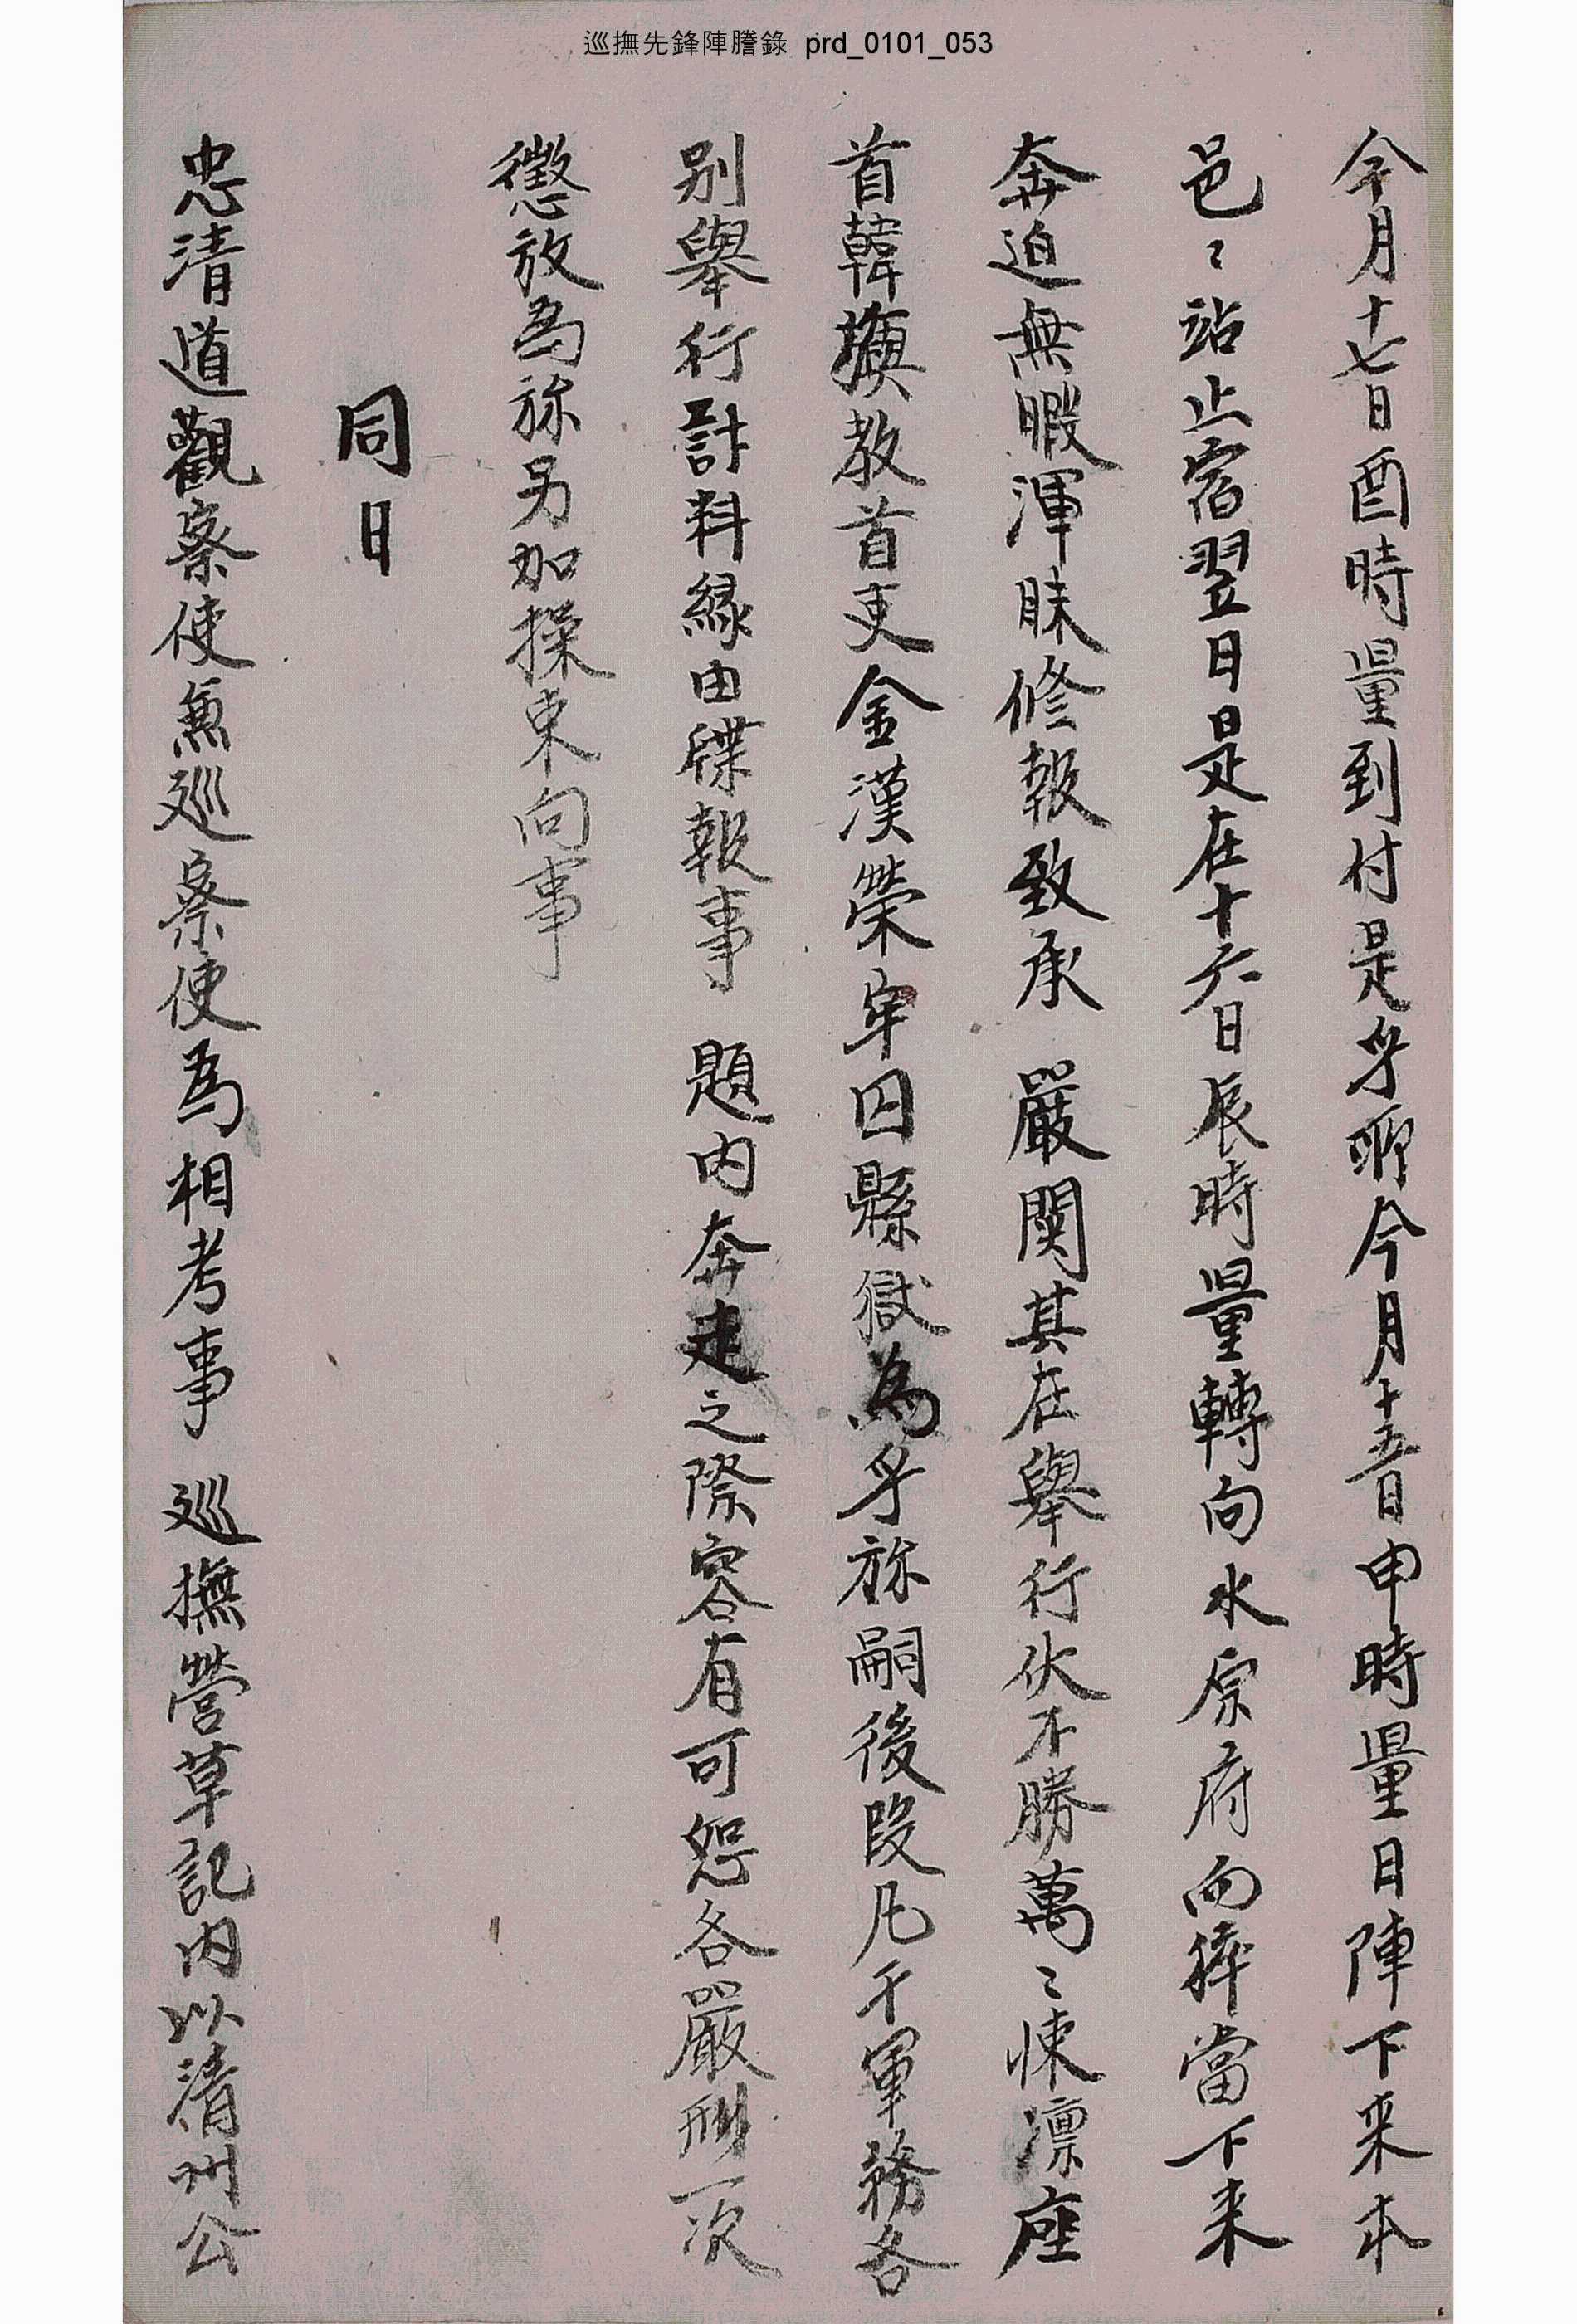 巡撫先鋒陣謄錄 prd_0101_053
今月十七日酉時量到付是乎所今月十五日申時量日陣下来本
邑〻站止宿翌日是在十六日辰時量轉向水原府向猝當下来
奔迫無暇渾昧修報致承 嚴関其在舉行伏不勝萬〻悚凛座
首韓 教首吏金漢榮牢囚縣獄為乎旀嗣後段凡干軍務各
别舉行計料緣由牒報事 題内奔走之際容有可恕各嚴刑一次
懲放為旀另加操束向事
同日
忠清道觀察使兼巡察使為相考事 巡撫營草記内以清州公